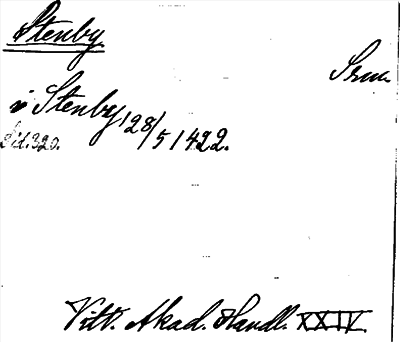 Stenby.
Srm.
i Stenby, 28/5 1422.
Sid. 320.
Vitt. Akad. Handl. XXIV.